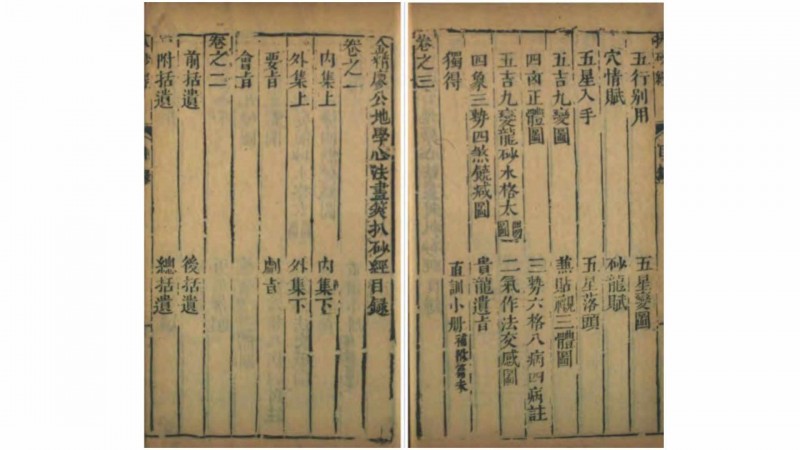 金精廖公地學心法畫筴扒砂經目錄
卷之一
内集上 内集下
外集上 外集下
要旨 劇旨
會旨
卷之二
前括遺 後括遺
附括遺 總括遺
五行别用 五星變圖
穴情賦 砂龍賦
五星入手 五星落頭
五吉九變圖 兼貼覩三體圖
四凶正體圖 三勢六格八病四病註
五吉九變龍砂水格太圖 二氣作法交感圖
四象三勢四煞饒減圖 貴龍遺旨
獨得 直訓小册
卷之三